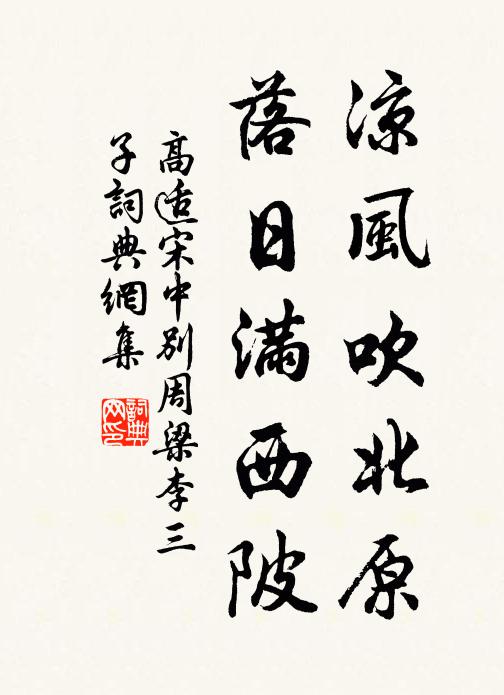 涼風吹北原
落日满西陂
高适宋中別周梁李三
子詞典網集
詞典
网印